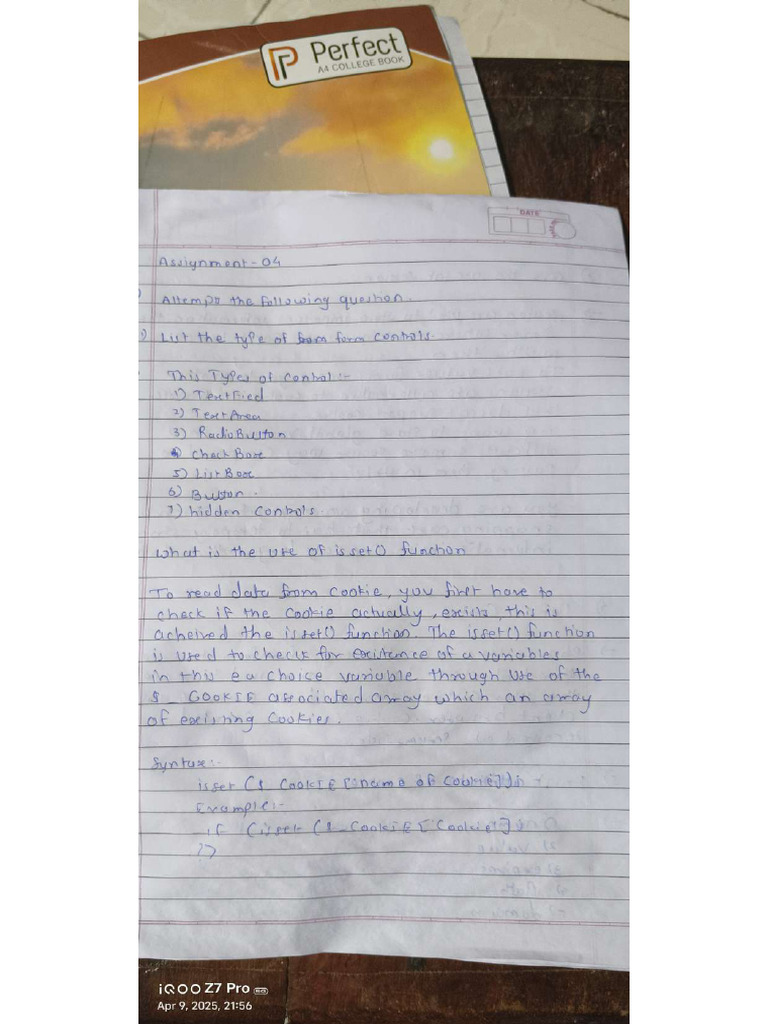 Perfect
A4 COLLEGE BOOK
DATE
Assignment - 04
Attempt the following question.
List the type of form controls.
This Types of Control :-
1) TextFied
2) TextArea
3) RadioButton
4) CheckBox
5) ListBox
6) Button .
7) hidden Controls.
What is the use of isset() function
To read data from cookie, you first have to
check if the cookie actually, exists, this is
acheived the isset() function. The isset() function
is used to check for existence of a variables
in this choice variable through use of the
$_COOKIE associated array which an array
of existing Cookies.
Syntax:-
isset ($_COOKIE ["name of Cookie"]);
Example:-
if (isset ($_COOKIE ["Cookie"]
iQOO Z7 Pro 5G
Apr 9, 2025, 21:56